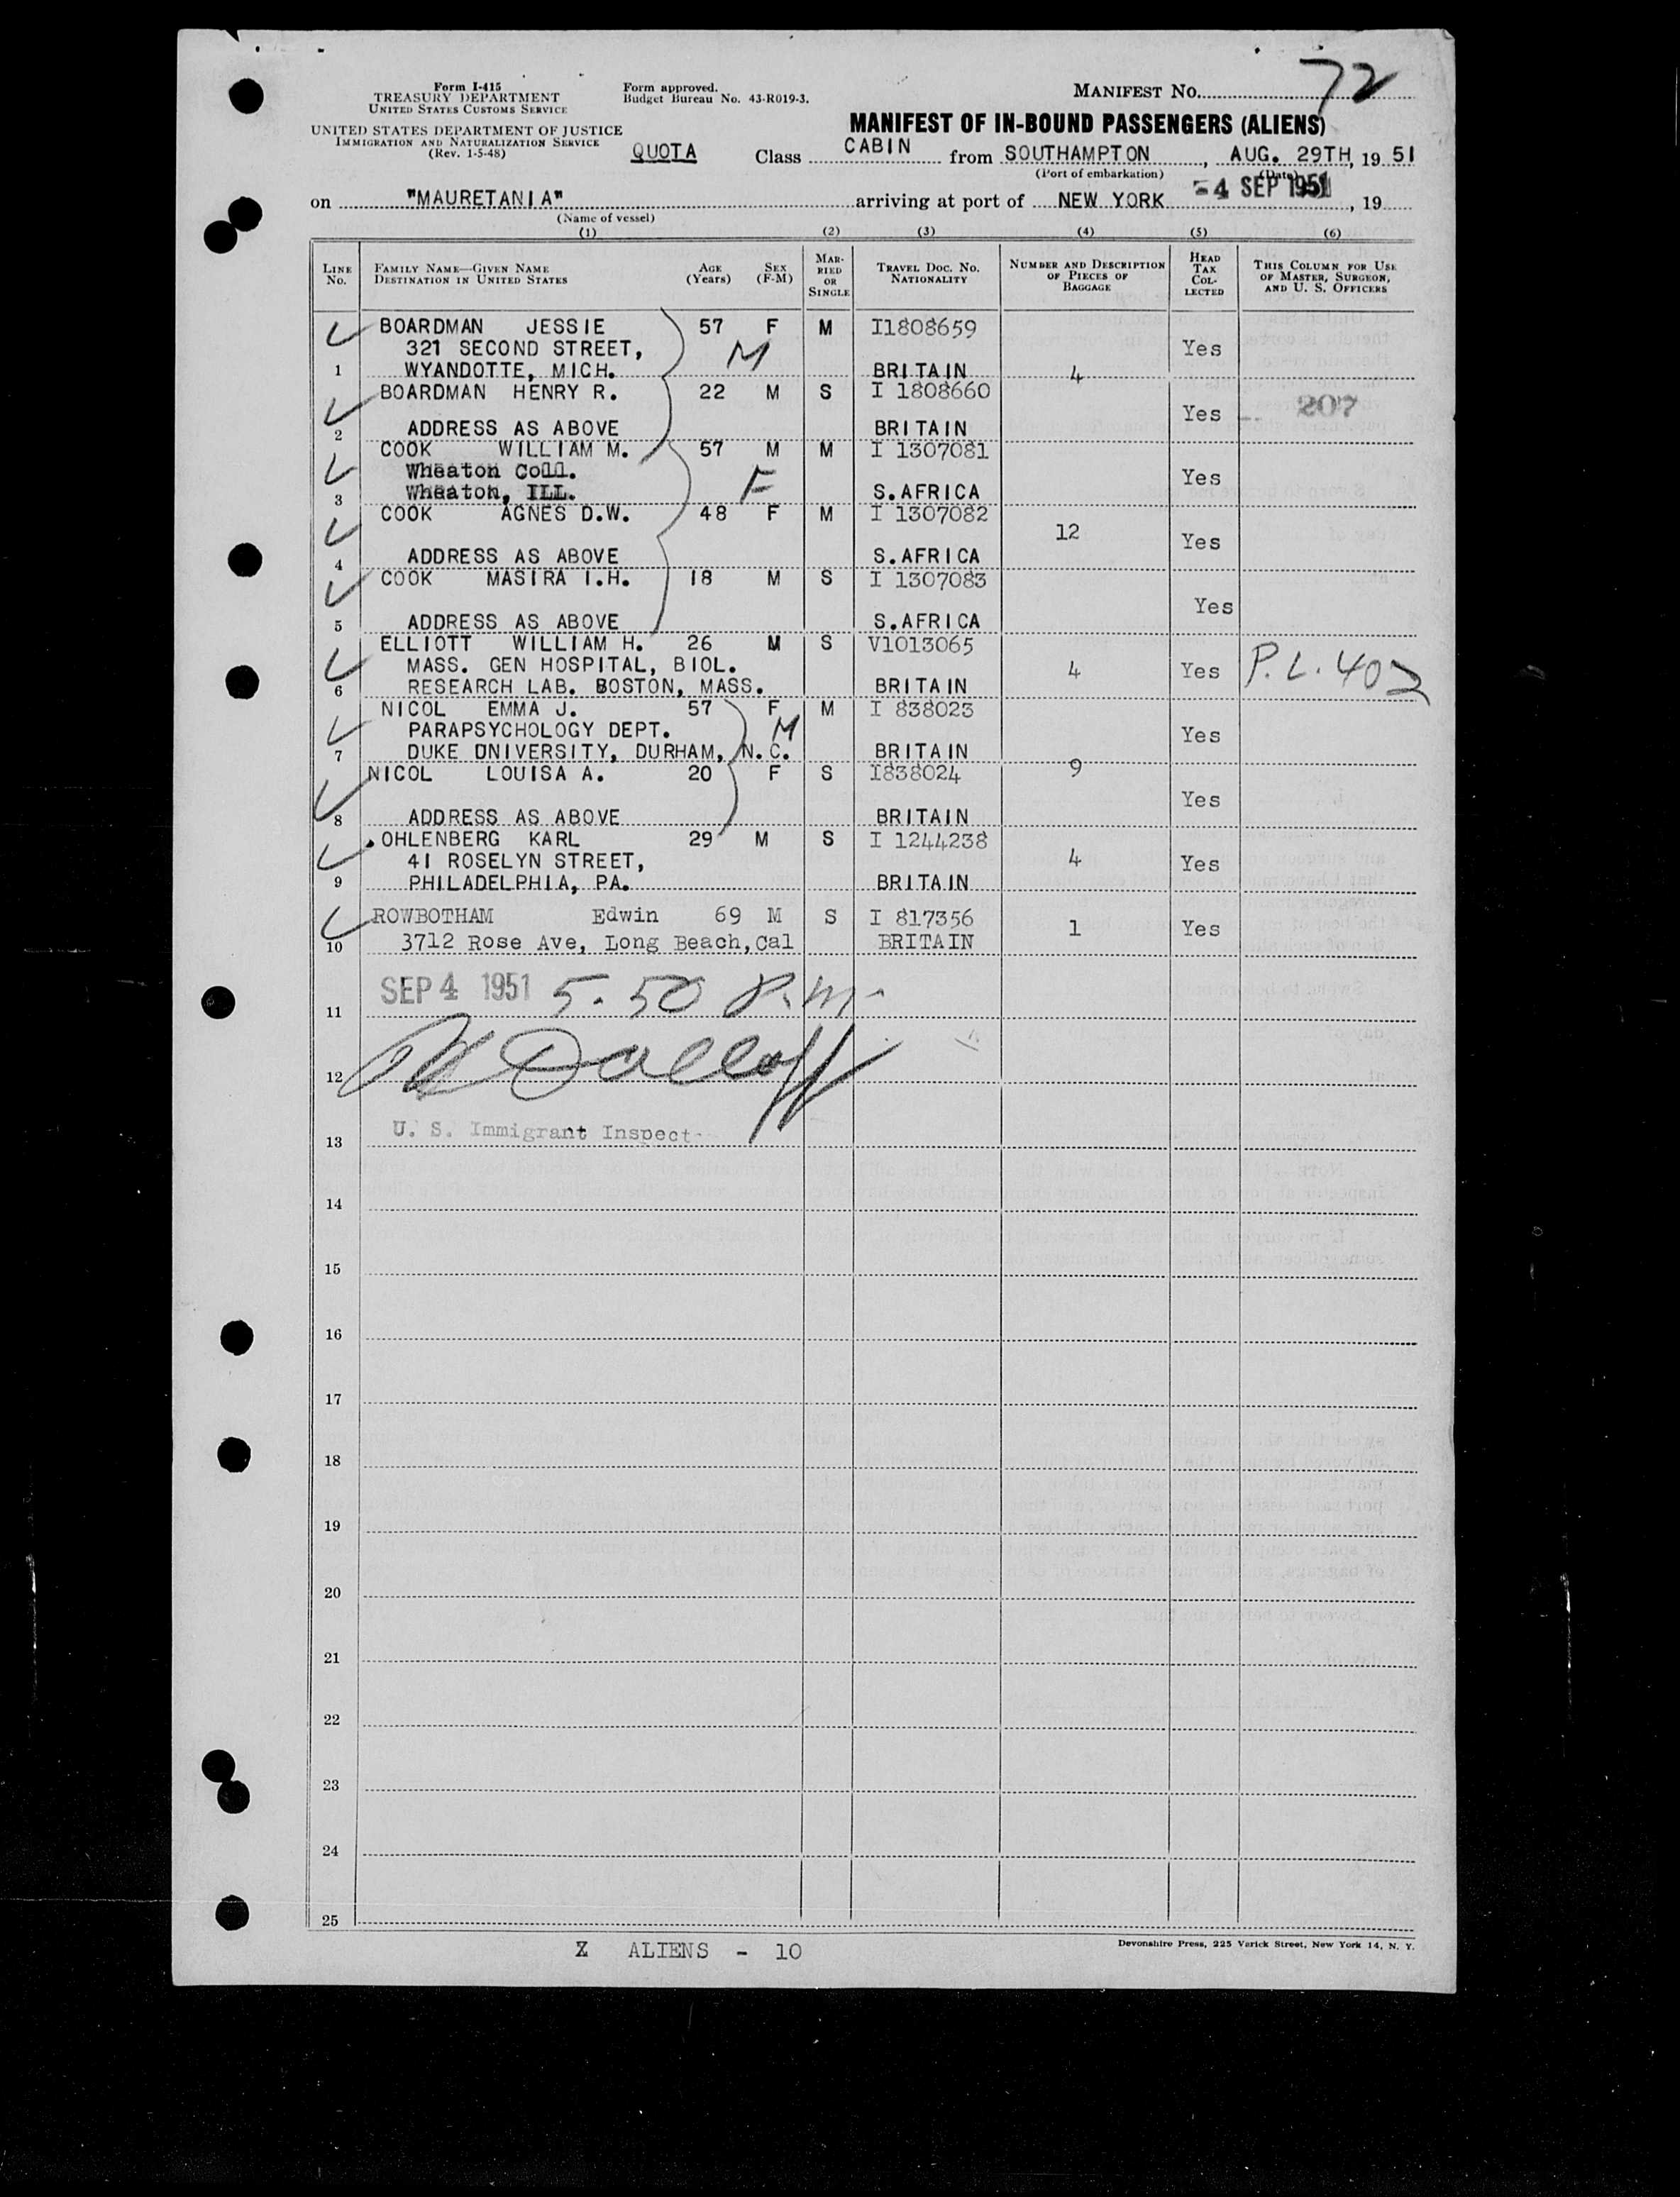 Form I-415
TREASURY DEPARTMENT
UNITED STATES CUSTOMS SERVICE
UNITED STATES DEPARTMENT OF JUSTICE
IMMIGRATION AND NATURALIZATION SERVICE
(Rev. 1-5-48)
Form approved.
Budget Bureau No. 43-R019-3.
MANIFEST No. 72
MANIFEST OF IN-BOUND PASSENGERS (ALIENS)
QUOTA Class CABIN from SOUTHAMPTON, AUG. 29TH, 19 51
(Port of embarkation) (Date)
on "MAURETANIA" arriving at port of NEW YORK -4 SEP 1951, 19
(Name of vessel)
(1) (2) (3) (4) (5) (6)
LINE No. FAMILY NAME—GIVEN NAME DESTINATION IN UNITED STATES AGE (Years) SEX (F-M) MARRIED OR SINGLE TRAVEL DOC. NO. NATIONALITY NUMBER AND DESCRIPTION OF PIECES OF BAGGAGE HEAD TAX COLLECTED THIS COLUMN FOR USE OF MASTER, SURGEON, AND U. S. OFFICERS
BOARDMAN JESSIE 57 F M I1808659
321 SECOND STREET, M Yes
1 WYANDOTTE, MICH. BRITAIN 4
BOARDMAN HENRY R. 22 M S I 1808660
Yes 207
2 ADDRESS AS ABOVE BRITAIN
COOK WILLIAM M. 57 M M I 1307081
Wheaton Coll. F Yes
3 Wheaton, ILL. S.AFRICA
COOK AGNES D.W. 48 F M I 1307082
12 Yes
4 ADDRESS AS ABOVE S.AFRICA
COOK MASIRA I.H. 18 M S I 1307083
Yes
5 ADDRESS AS ABOVE S.AFRICA
ELLIOTT WILLIAM H. 26 M S V1013065
MASS. GEN HOSPITAL, BIOL. 4 Yes P.L. 402
6 RESEARCH LAB. BOSTON, MASS. BRITAIN
NICOL EMMA J. 57 F M I 838023
PARAPSYCHOLOGY DEPT. M Yes
7 DUKE UNIVERSITY, DURHAM, N.C. BRITAIN
NICOL LOUISA A. 20 F S I838024 9
Yes
8 ADDRESS AS ABOVE BRITAIN
OHLENBERG KARL 29 M S I 1244238
41 ROSELYN STREET, 4 Yes
9 PHILADELPHIA, PA. BRITAIN
ROWBOTHAM Edwin 69 M S I 817356 1 Yes
10 3712 Rose Ave, Long Beach, Cal BRITAIN
SEP 4 1951 5.50 P.M.
11
12
U. S. Immigrant Inspect
13
14
15
16
17
18
19
20
21
22
23
24
25
Z ALIENS - 10
Devonshire Press, 225 Varick Street, New York 14, N. Y.